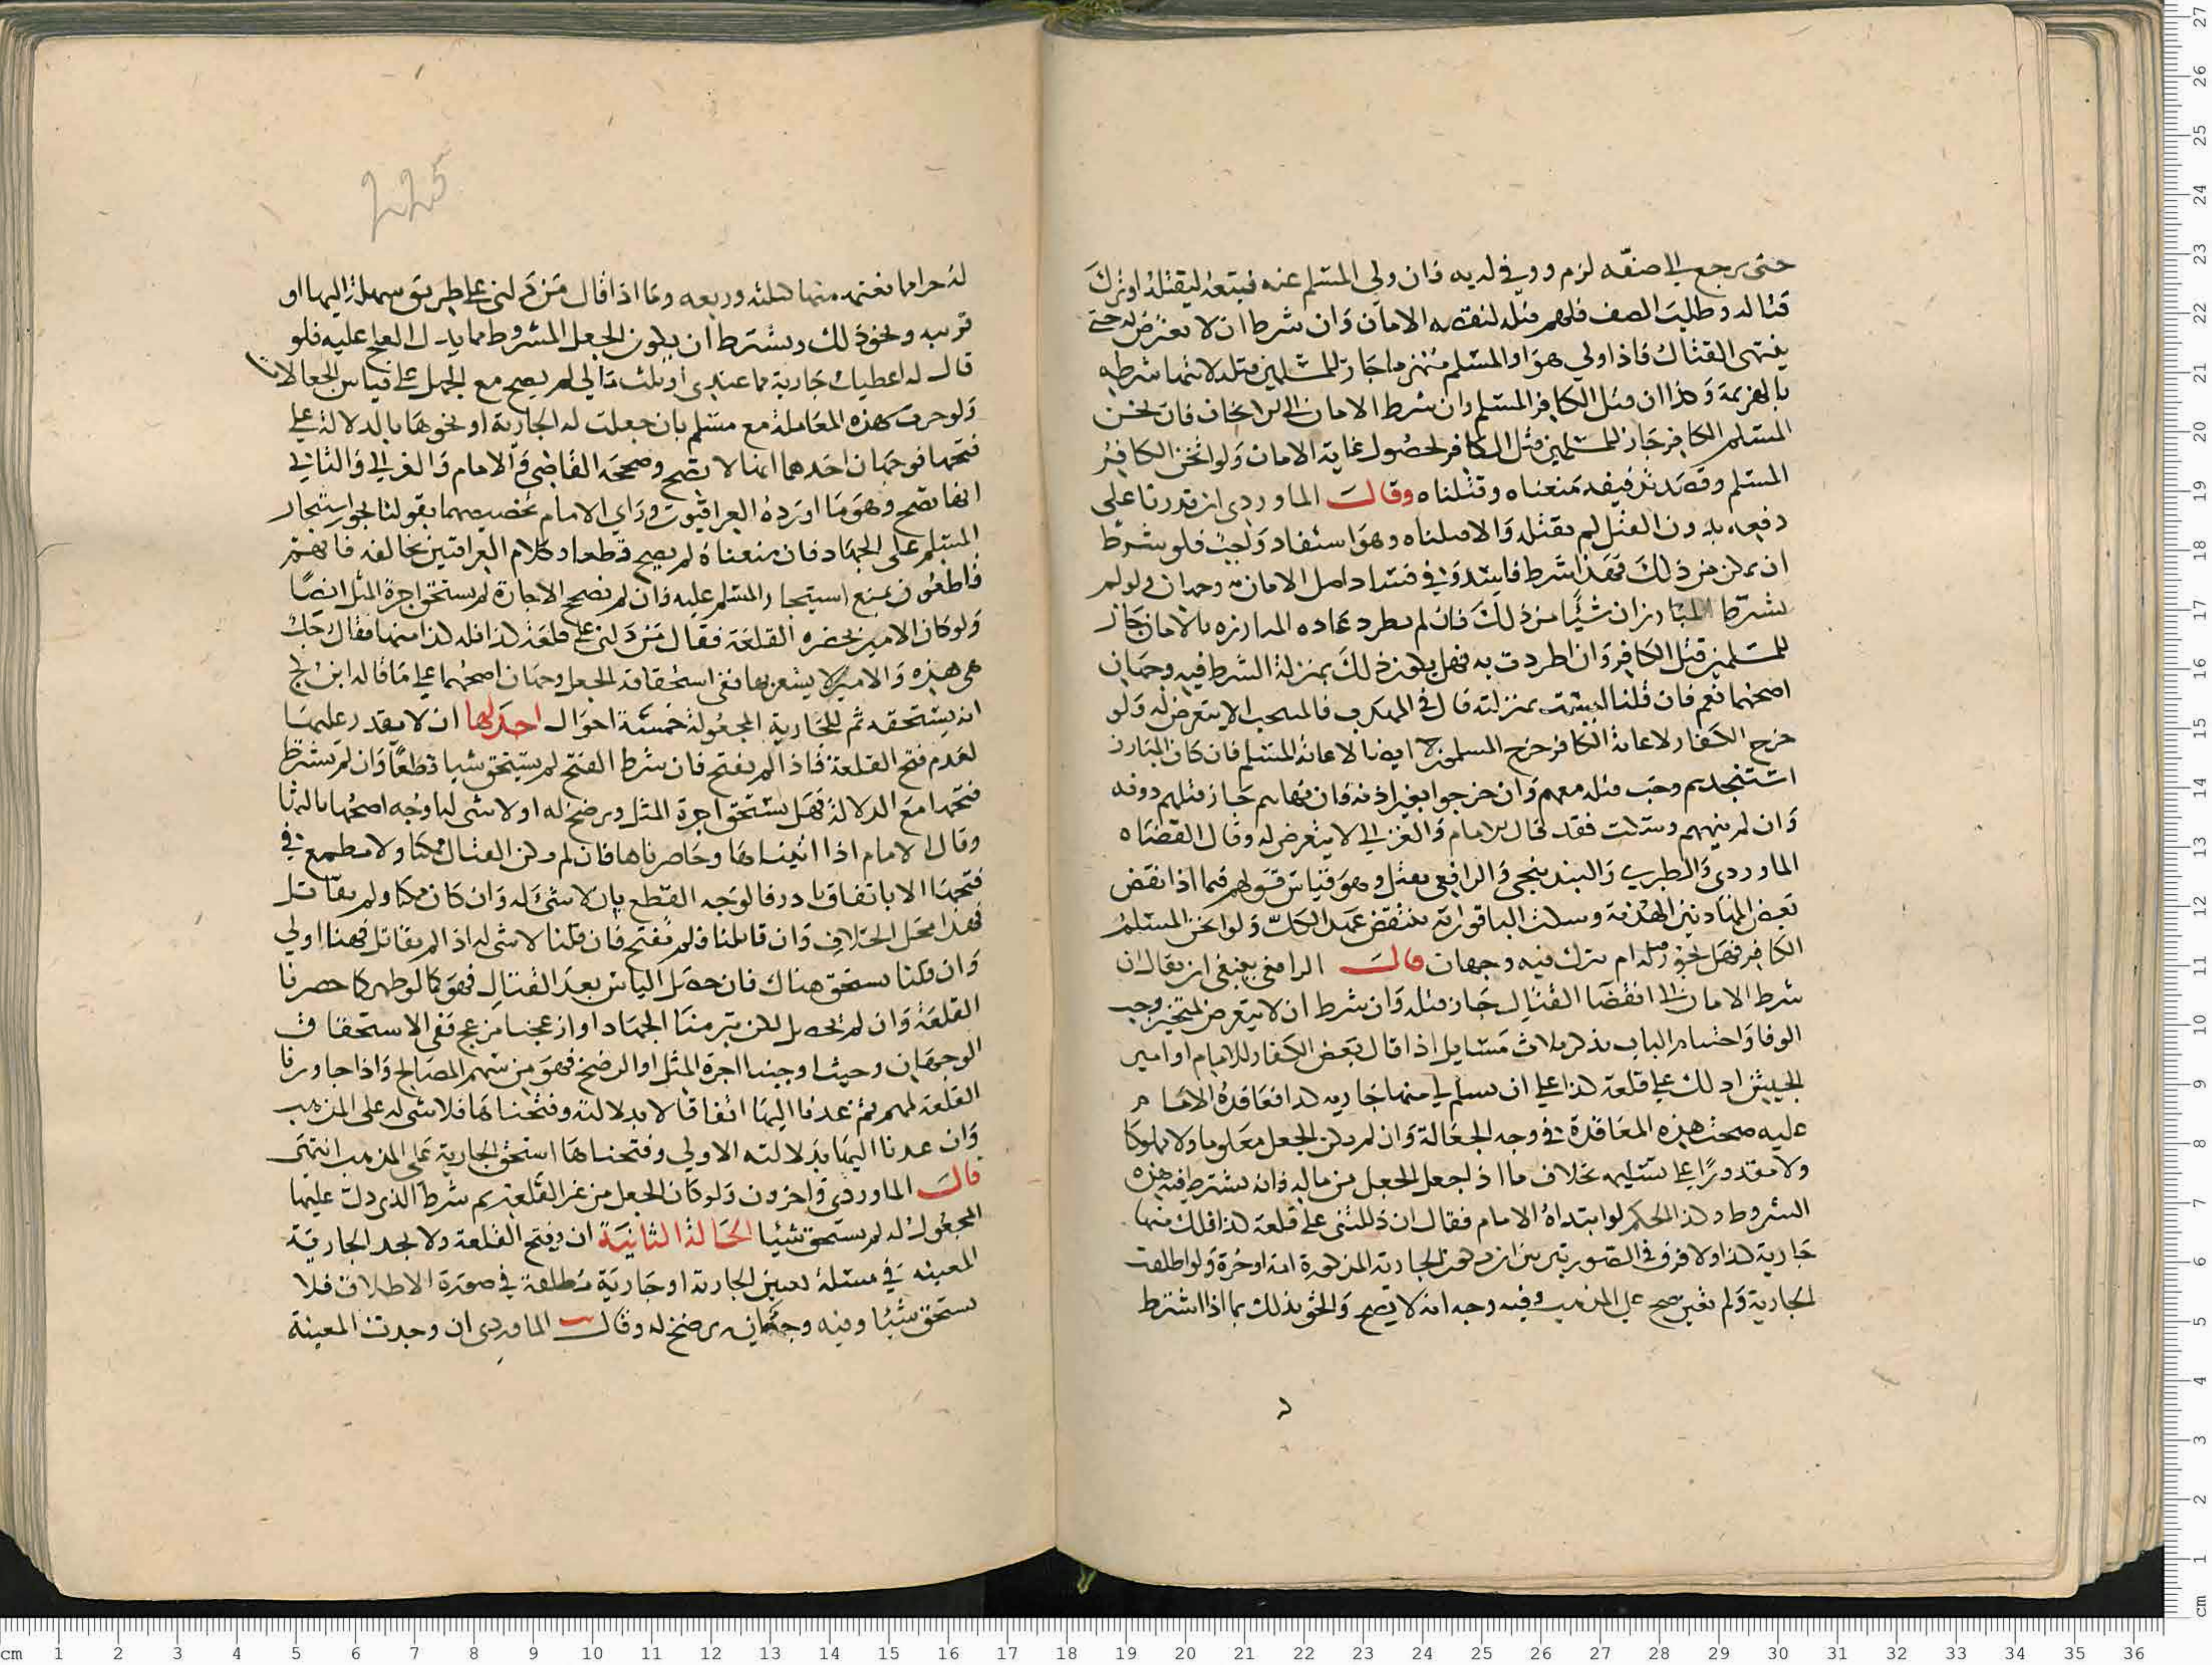 حتى يرجع الى صفه لزم ووفي له به فان ولى المسلم عنه فتبعه ليقتله او ترك
قتاله وطلب الصف فلهم قتله لنقضه الامان وان شرط ان لا يتعرض له حتى
ينتهى القتال فاذا ولى هو او المسلم منهزما جاز للمسلمين قتله لانتهاء شرطه
بالهزيمة وكذا ان قتل الكافر المسلم وان شرط الامان الى الاثخان فاثخن
المسلم الكافر جاز للمسلمين قتل الكافر لحصول غاية الامان ولو اثخن الكافر
المسلم وقصد تذفيفه منعناه وقتلناه وقال الماوردى ان قدرنا على
دفعه بدون القتل لم نقتله والا قتلناه وهو استنقاذ واجب فلو شرط
ان يمكن من ذلك فهذا شرط فاسد وفي فساد اصل الامان به وجهان ولو لم
يشرط المتبارزان شيئا من ذلك فان لم تطرد عادة المبارزة بالامان جاز
للمسلمين قتل الكافر وان اطردت به فهل يكون ذلك بمنزلة الشرط فيه وجهان
اصحهما نعم فان قلنا ليست بمنزلته قال في المهذب فالمستحب الا يتعرض له ولو
خرج الكفار لاعانة الكافر خرج المسلمون ايضا لاعانة المسلم فان كان المبارز
استنجدهم وجب قتله معهم وان خرجوا بغير اذنه فان نهاهم جاز قتلهم دونه
وان لم ينههم وسكت فقد قال الامام والغزالي لا يتعرض له وقال القضاه
الماوردى والطبري والبندنيجى والرافعى يقتل وهو قياس قولهم فيما اذا نقض
بعض المهادنين الهدنة وسكت الباقون انه ينتقض عهد الكل ولو اثخن المسلم
الكافر فهل يجوز قتله ام يترك فيه وجهان قال الرافعى ينبغى ان يقال ان
شرط الامان الى انقضا القتال جاز قتله وان شرط ان لا يتعرض للمثخن وجب
الوفا واختتام الباب بذكر ثلاث مسايل اذا قال بعض الكفار للامام او امير
الجيش ادلك على قلعة كذا على ان تسلم لي منها جارية كذا فعاقده الامام
عليه صحت هذه المعاقدة في وجه الجعالة وان لم يكن الجعل معلوما ولا مملوكا
ولا مقدورا على تسليمه بخلاف ما اذا جعل الجعل من ماله فانه يشترط فيه هذه
الشروط وكذا الحكم لو ابتداه الامام فقال ان دللتنى على قلعة كذا فلك منها
جارية كذا ولا فرق في الصورتين بين ان تكون الجارية المذكورة امة او حرة ولو اطلقت
الجارية ولم تعين صح على المذهب وفيه وجه انه لا يصح والحق بذلك بما اذا اشترط
له جزا مما نغنمه منها كثلثه وربعه وما اذا قال من دلنى على طريق سهلة اليها او
قريبه ونحو ذلك ويشترط ان يكون الجعل المشروط مما يدل العلج عليه فلو
قال له اعطيك جارية مما عندى او ثلث مالى لم يصح مع الجهل على قياس الجعالات
ولو جرت هذه المعاملة مع مسلم بان جعلت له الجارية او نحوها بالدلالة على
فتحها فوجهان احدهما انها لا تصح وصححه القاضى والامام والغزالي والثاني
انها تصح وهو ما اورده العراقيون وراى الامام تخصيصهما بقولنا بجواز استيجار
المسلم على الجهاد فان منعناه لم يصح قطعا وكلام العراقيين يخالفه فانهم
قاطعون بمنع استيجار المسلم عليه وان لم تصح الاجارة لم يستحق اجرة المثل ايضا
ولو كان الامير بحضرة القلعة فقال من دلنى على قلعة كذا فله كذا منها فقال علج
هى هذه والامير لا يشعر بها ففى استحقاقه الجعل وجهان اصحهما على ما قاله ابن كج
انه يستحقه ثم للجارية المجعولة خمسة احوال احدها ان لا يقدر عليها
لعدم فتح القلعة فاذا لم تفتح فان شرط الفتح لم يستحق شيا قطعا وان لم يشترط
فتحها مع الدلالة فهل يستحق اجرة المثل ويرضخ له او لا شى له اوجه اصحها ثالثها
وقال الامام اذا اتيناها وحاصرناها فان لم يكن القتال ممكنا ولا مطمع في
فتحها الا باتفاق نادر فالوجه القطع بان لا شئ له وان كان ممكنا ولم نقاتل
فهذا محل الخلاف وان قاتلنا فلم تفتح فان قلنا لا شى له اذا لم نقاتل فهنا اولى
وان قلنا يستحق هناك فان حصل الياس بعد القتال فهو كما لو ظهر كما حصرنا
القلعة وان لم يحصل لكن تبرمنا الجهاد او ازعجنا مزعج ففى الاستحقاق
الوجهان وحيث اوجبنا اجرة المثل او الرضخ فهو من سهم المصالح واذا جاوزنا
القلعة لمهم ثم عدنا اليها اتفاقا لا بدلالته وفتحناها فلا شى له على المذهب
وان عدنا اليها بدلالته الاولى وفتحناها استحق الجارية على المذهب انتهى
قال الماوردى واخرون ولو كان الجعل من غير القلعة ثم شرط الذى دل عليها
المجعول له لم يستحق شيئا الحالة الثانية ان تفتح القلعة ولا نجد الجارية
المعينه في مسئلة تعيين الجارية او جارية مطلقة في صورة الاطلاق فلا
يستحق شيئا وفيه وجه انه يرضخ له وقال الماوردى ان وجدت المعينة